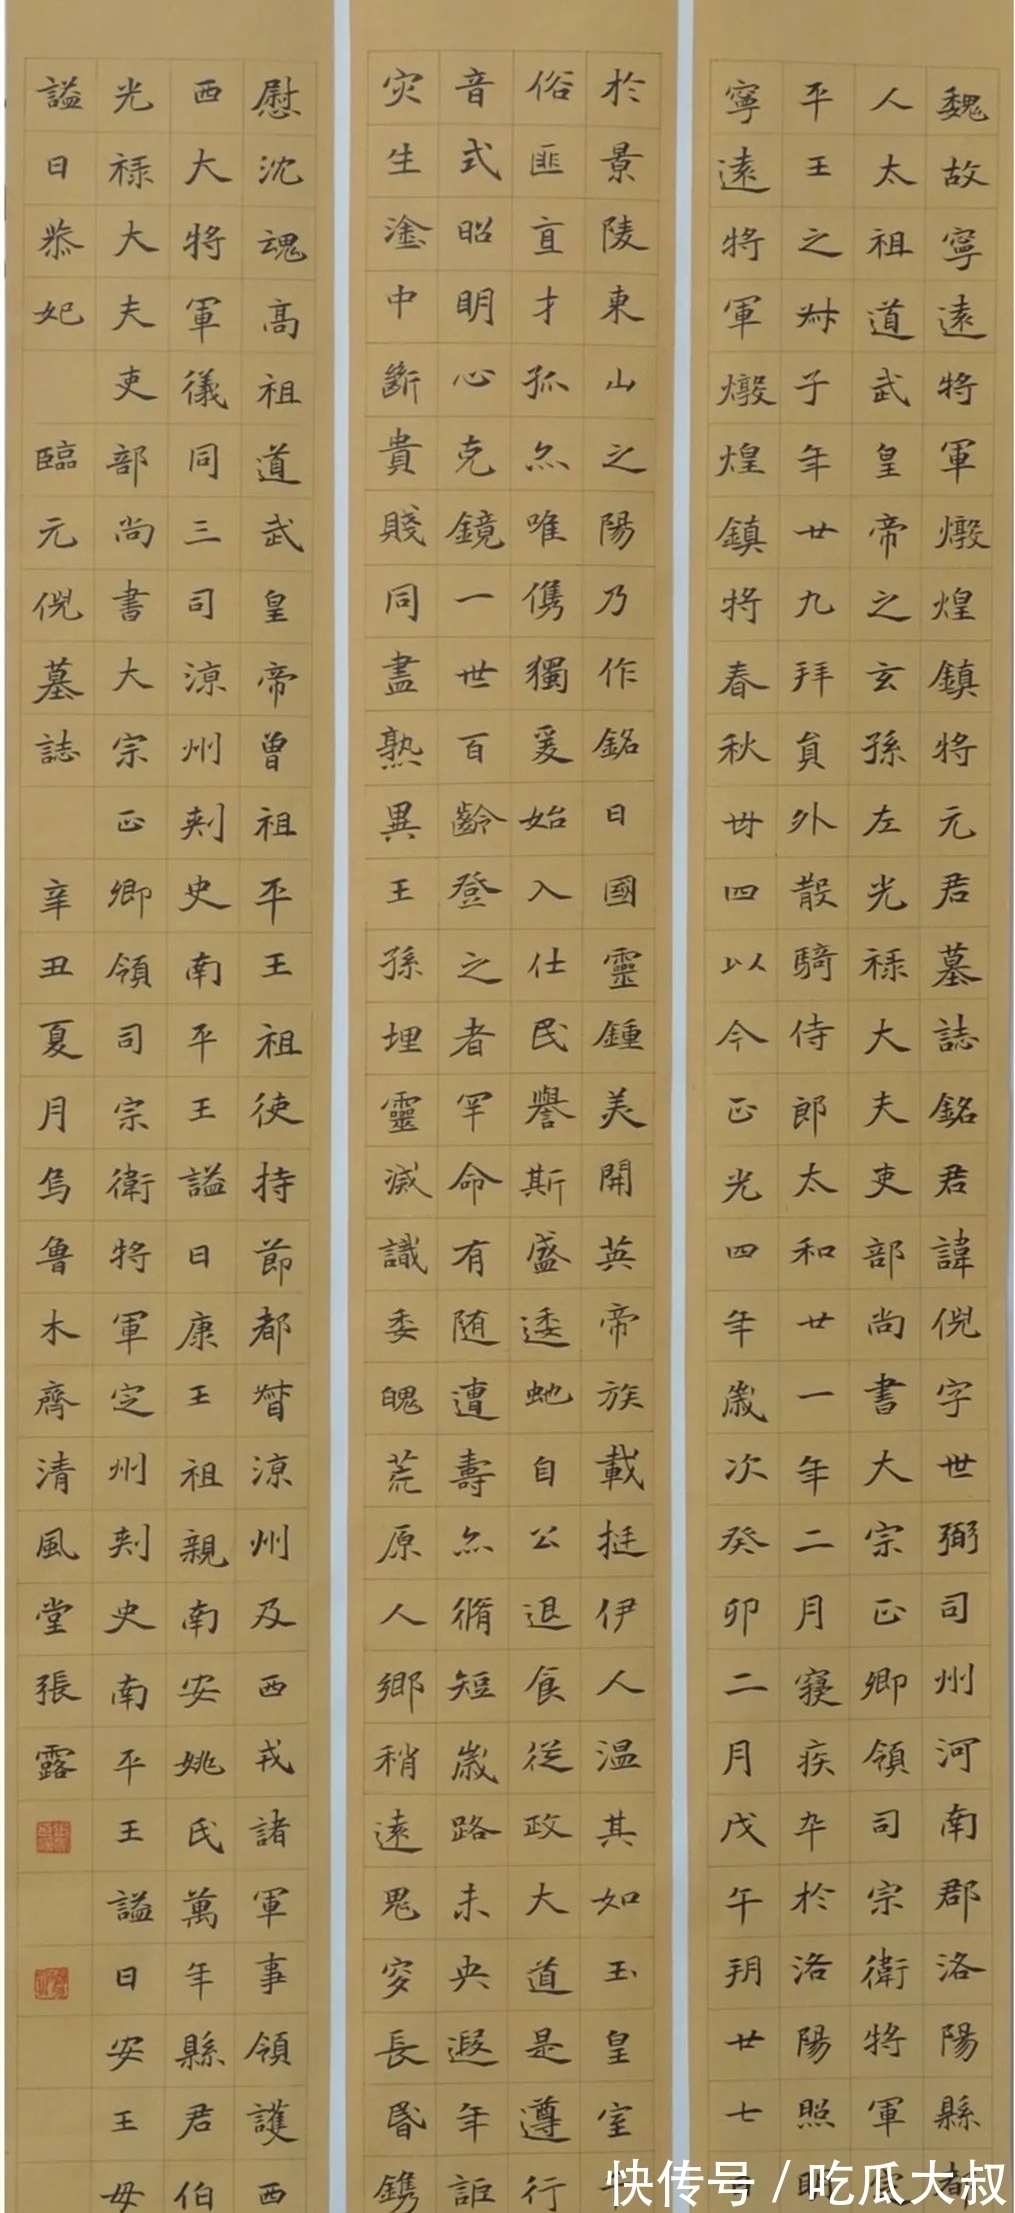 魏故寧遠将軍燉煌鎮将元君墓誌銘君諱倪字世弼司州河南郡洛陽縣都
人太祖道武皇帝之玄孫左光禄大夫吏部尚書大宗正卿領司宗衛将軍定
平王之叔子年廿九拜員外散騎侍郎太和廿一年二月寝疾卒於洛陽照明
寧遠将軍燉煌鎮将春秋卌四以今正光四年歲次癸卯二月戊午玥廿七日
於景陵東山之陽乃作銘曰國靈鍾美開英帝族載挺伊人温其如玉皇室
俗匪直才孤亦唯儁獨爰始入仕民譽斯盛逶虵自公退食從政大道是遵行
音式昭明心克鏡一世百齡登之者罕命有随遭壽亦脩短歲路未央遐年詎
灾生塗中斷貴賤同盡熟異王孫埋靈滅識委魄荒原人鄉稍遠鬼穸長昏鎸
慰沈魂高祖道武皇帝曾祖平王祖使持節都督涼州及西戎諸軍事領護西
西大将軍儀同三司涼州刺史南平王謚曰康王祖親南安姚氏萬年縣君伯
光禄大夫吏部尚書大宗正卿領司宗衛将軍定州刺史南平王謚曰安王毋
謚曰恭妃 臨元倪墓誌 辛丑夏月烏魯木齊清風堂張露
快传号/吃瓜大叔